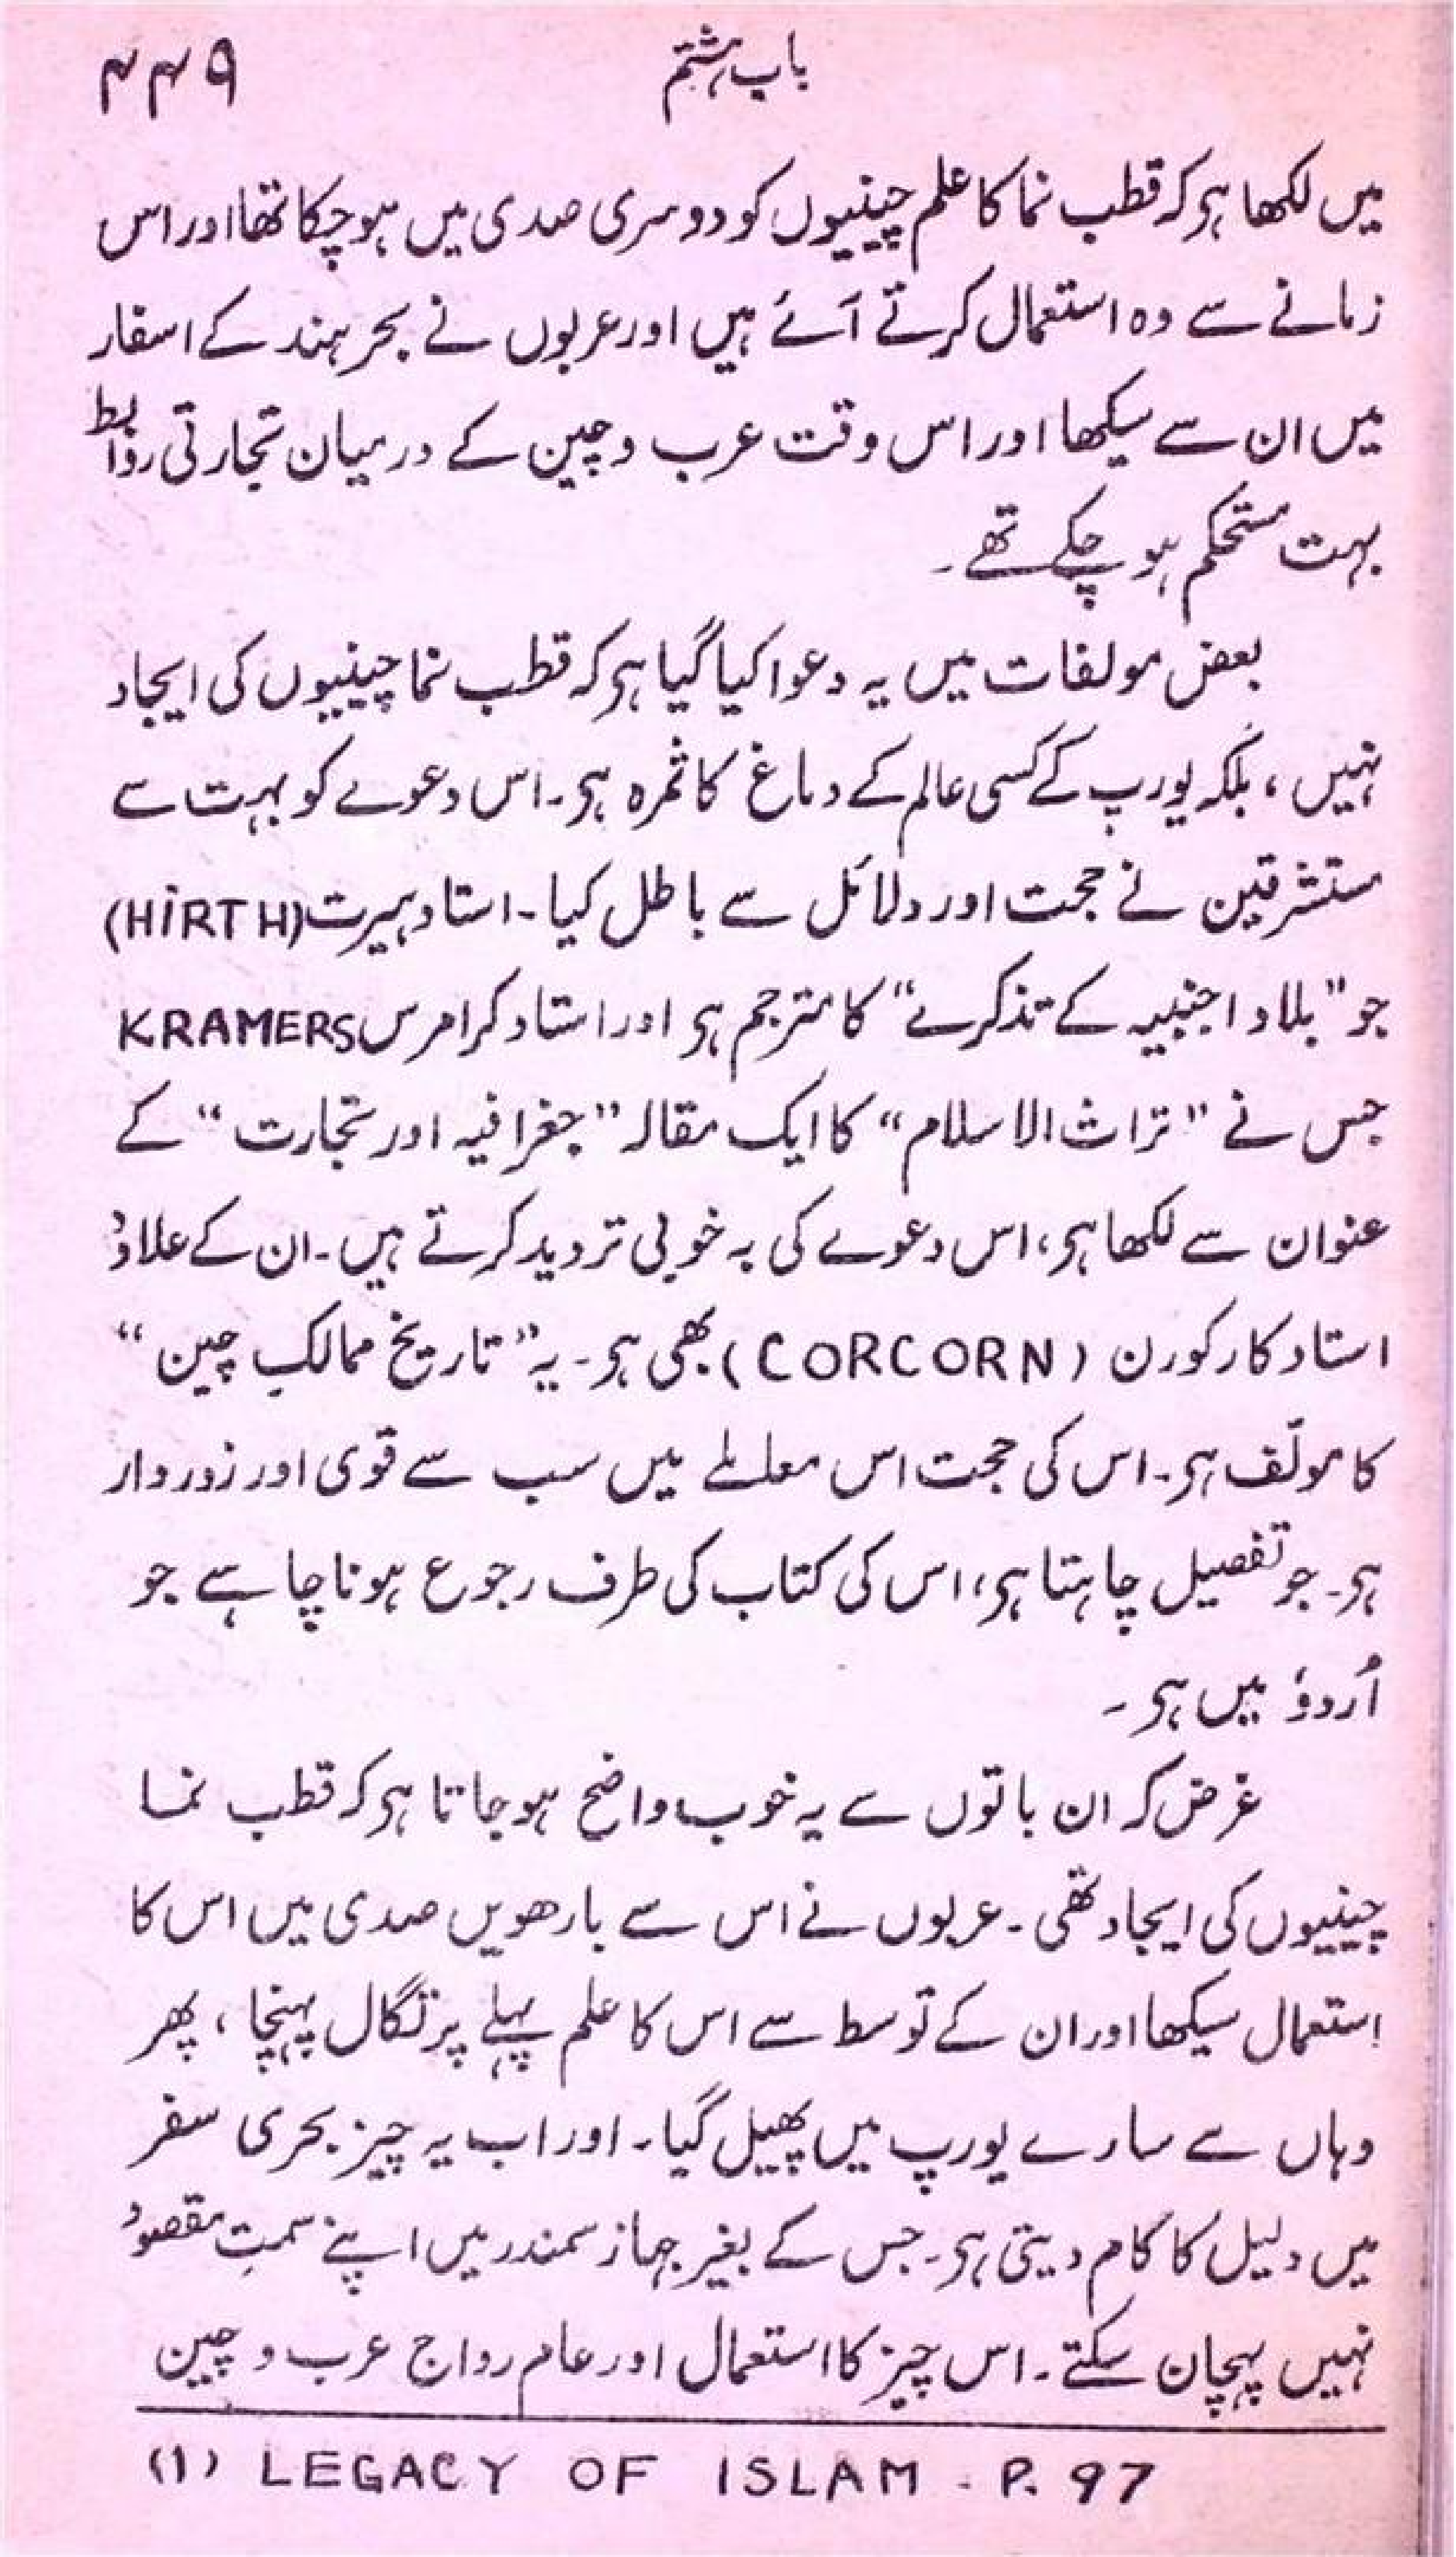 باب ہشتم
۴۴۹
میں لکھا ہر کہ قطب نما کا علم چینیوں کو دوسری صدی میں ہوچکا تھا اور اس
زمانے سے وہ استعمال کرتے آئے ہیں اور عربوں نے بحر ہند کے اسفار
میں ان سے سیکھا اور اس وقت عرب و چین کے درمیان تجارتی روابط
بہت مستحکم ہو چکے تھے۔
بعض مولفات میں یہ دعوا کیا گیا ہر کہ قطب نما چینیوں کی ایجاد
نہیں، بلکہ یورپ کے کسی عالم کے دماغ کا ثمرہ ہر۔ اس دعوے کو بہت سے
مستشرقین نے حجت اور دلائل سے باطل کیا۔ استاد ہیرت (HiRTH)
جو "بلاد اجنبیہ کے تذکرے" کا مترجم ہر اور استاد کرامرس KRAMERS
جس نے "تراث الاسلام" کا ایک مقالہ "جغرافیہ اور تجارت" کے
عنوان سے لکھا ہر، اس دعوے کی بہ خوبی تردید کرتے ہیں۔ ان کے علاوہ
استاد کارکورن (CORCORN) بھی ہر۔ یہ "تاریخ ممالکِ چین"
کا مولّف ہر۔ اس کی حجت اس معاملے میں سب سے قوی اور زوردار
ہر۔ جو تفصیل چاہتا ہر، اس کی کتاب کی طرف رجوع ہونا چاہے جو
اُردو میں ہر۔
غرض کہ ان باتوں سے یہ خوب واضح ہوجاتا ہر کہ قطب نما
چینیوں کی ایجاد تھی۔ عربوں نے اس سے بارھویں صدی میں اس کا
استعمال سیکھا اور ان کے توسط سے اس کا علم پہلے پرتگال پہنچا، پھر
وہاں سے سارے یورپ میں پھیل گیا۔ اور اب یہ چیز بحری سفر
میں دلیل کا کام دیتی ہر۔ جس کے بغیر جہاز سمندر میں اپنے سمتِ مقصود
نہیں پہچان سکتے۔ اس چیز کا استعمال اور عام رواج عرب و چین
(1) LEGACY OF ISLAM - P. 97